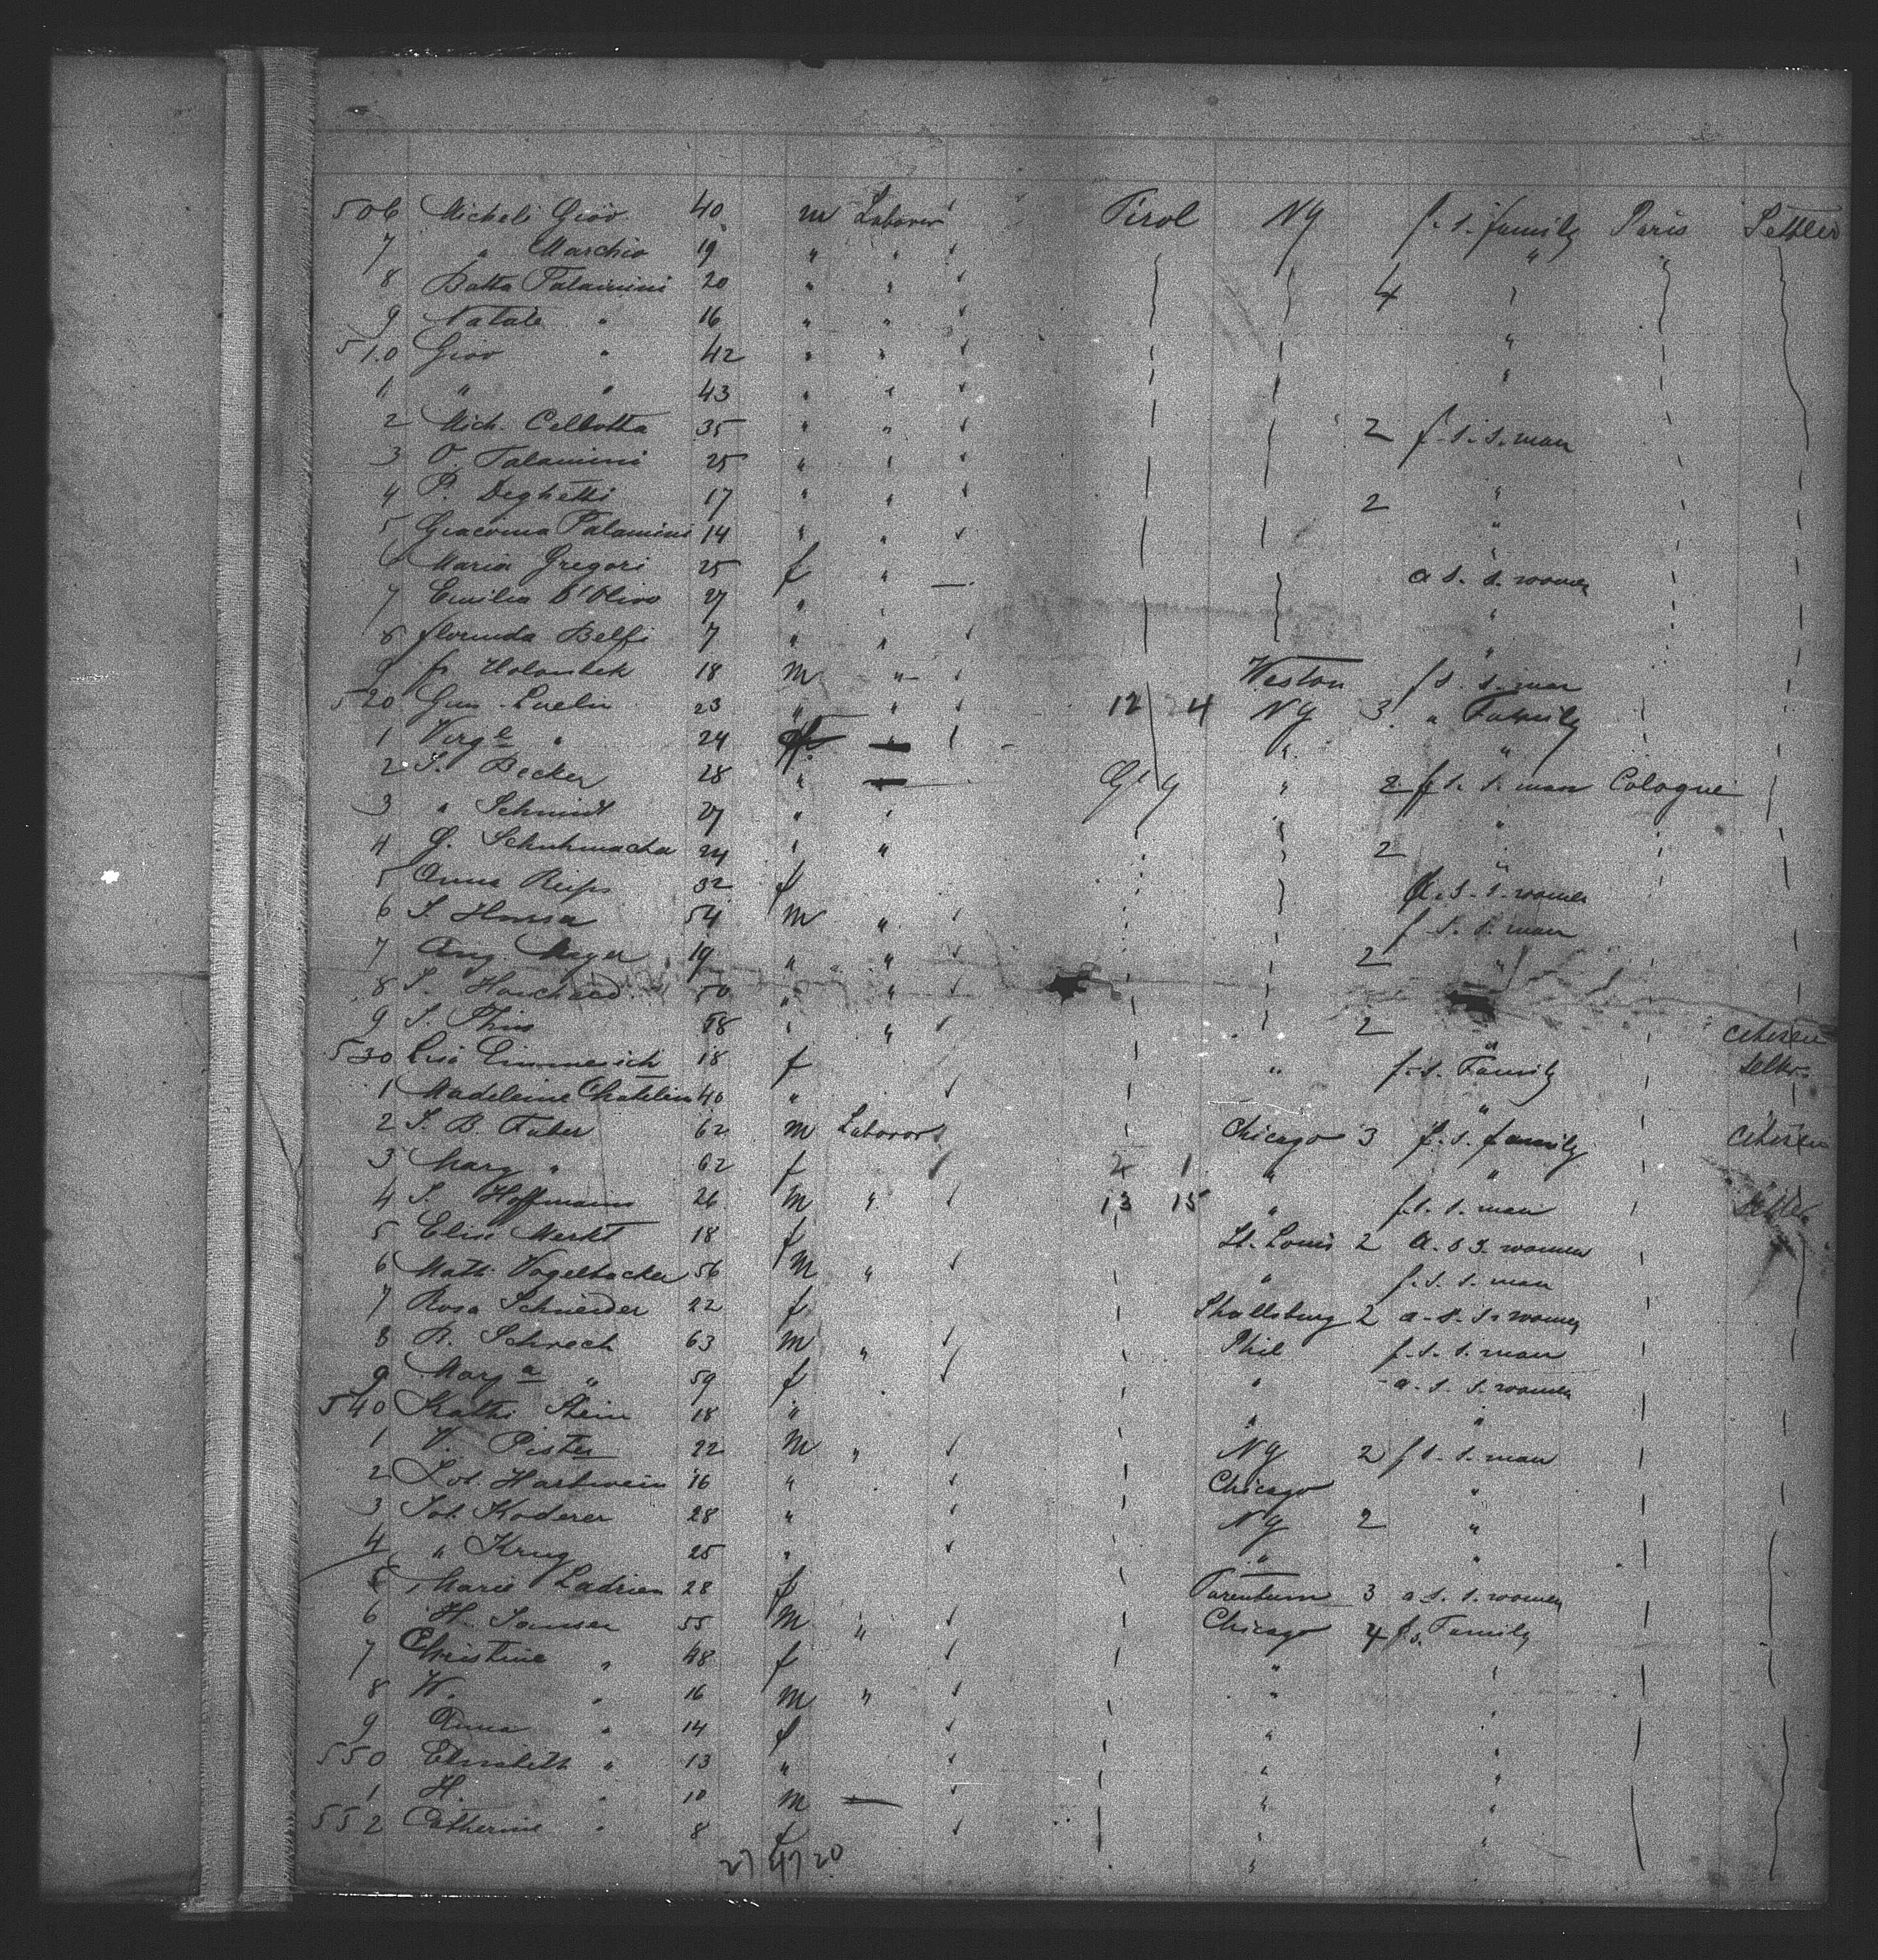 506 Micheli Giov. 40 m Laborer Tirol NY f. s. family Paris Settler
7 " Marchio 19 " " " "
8 Batta Talamini 20 " " 4
9 Natale " 16 " " "
510 Giov " 42 " " "
1 " " 43 " "
2 Mich. Cellotta 35 " " 2 f. s. s. man
3 O. Talamini 25 " "
4 P. Deghetti 17 " " 2 "
5 Giacoma Talamini 14 " " "
6 Maria Gregori 25 f " — a s. s. women
7 Emilia D'Olivo 27 " " "
8 florinda Belfi 7 " " "
9 fr. Holoubek 18 m " Weston f s. s. man
520 23 " " 12 24 NY 3 " Family
1 Virg e " 24 f " " "
2 J. Becker 28 " — Gy " 2 f s. s. man Cologne
3 " Schmidt 27 " " " "
4 G. Schuhmacher 24 " " 2 "
5 Anna Reips 32 f a. s. s. women
6 J. 54 m " f s. s. man
7 Aug. Mayer 19 " " 2 "
8 J. 50 " "
9 J. 58 " " 2 " Citizen
530 Emmerich 18 f " f. s. Family Settler
1 Madeleine Chatelin 40 " "
2 J. B. Faber 62 m Laborer Chicago 3 f. s. family Citizen
3 Marg " 62 f 2 1 " "
4 J. Hoffmann 26 m " 13 15 " f. s. s. man Settler
5 Elis Merkt 18 f St. Louis 2 a. s s. women
6 Math. Vogelbacher 56 m " " f. s. s. man
7 Rosa Schneider 22 f 2 a. s. s. women
8 B. Schroch 63 m " Phil f. s. s. man
9 Marg a " 59 f " a. s. s. women
540 Kathi Stein 18 " " "
1 V. Pister 22 m " NY 2 f s. s. man
2 Jos. Hartwein 16 " Chicago "
3 Jos. Koderer 28 " NY 2 "
4 " Krug 25 " " "
5 Marie Ladrien 28 f Tarentum 3 a s. s. women
6 H. Jansen 55 m " Chicago 4 f. s. Family
7 Christine " 48 f " "
8 W. " 16 m " " "
9 Anna " 14 f " "
550 Elisabeth " 13 " " "
1 H. " 10 m — " "
552 Catherine " 8 f " "
27 47 20